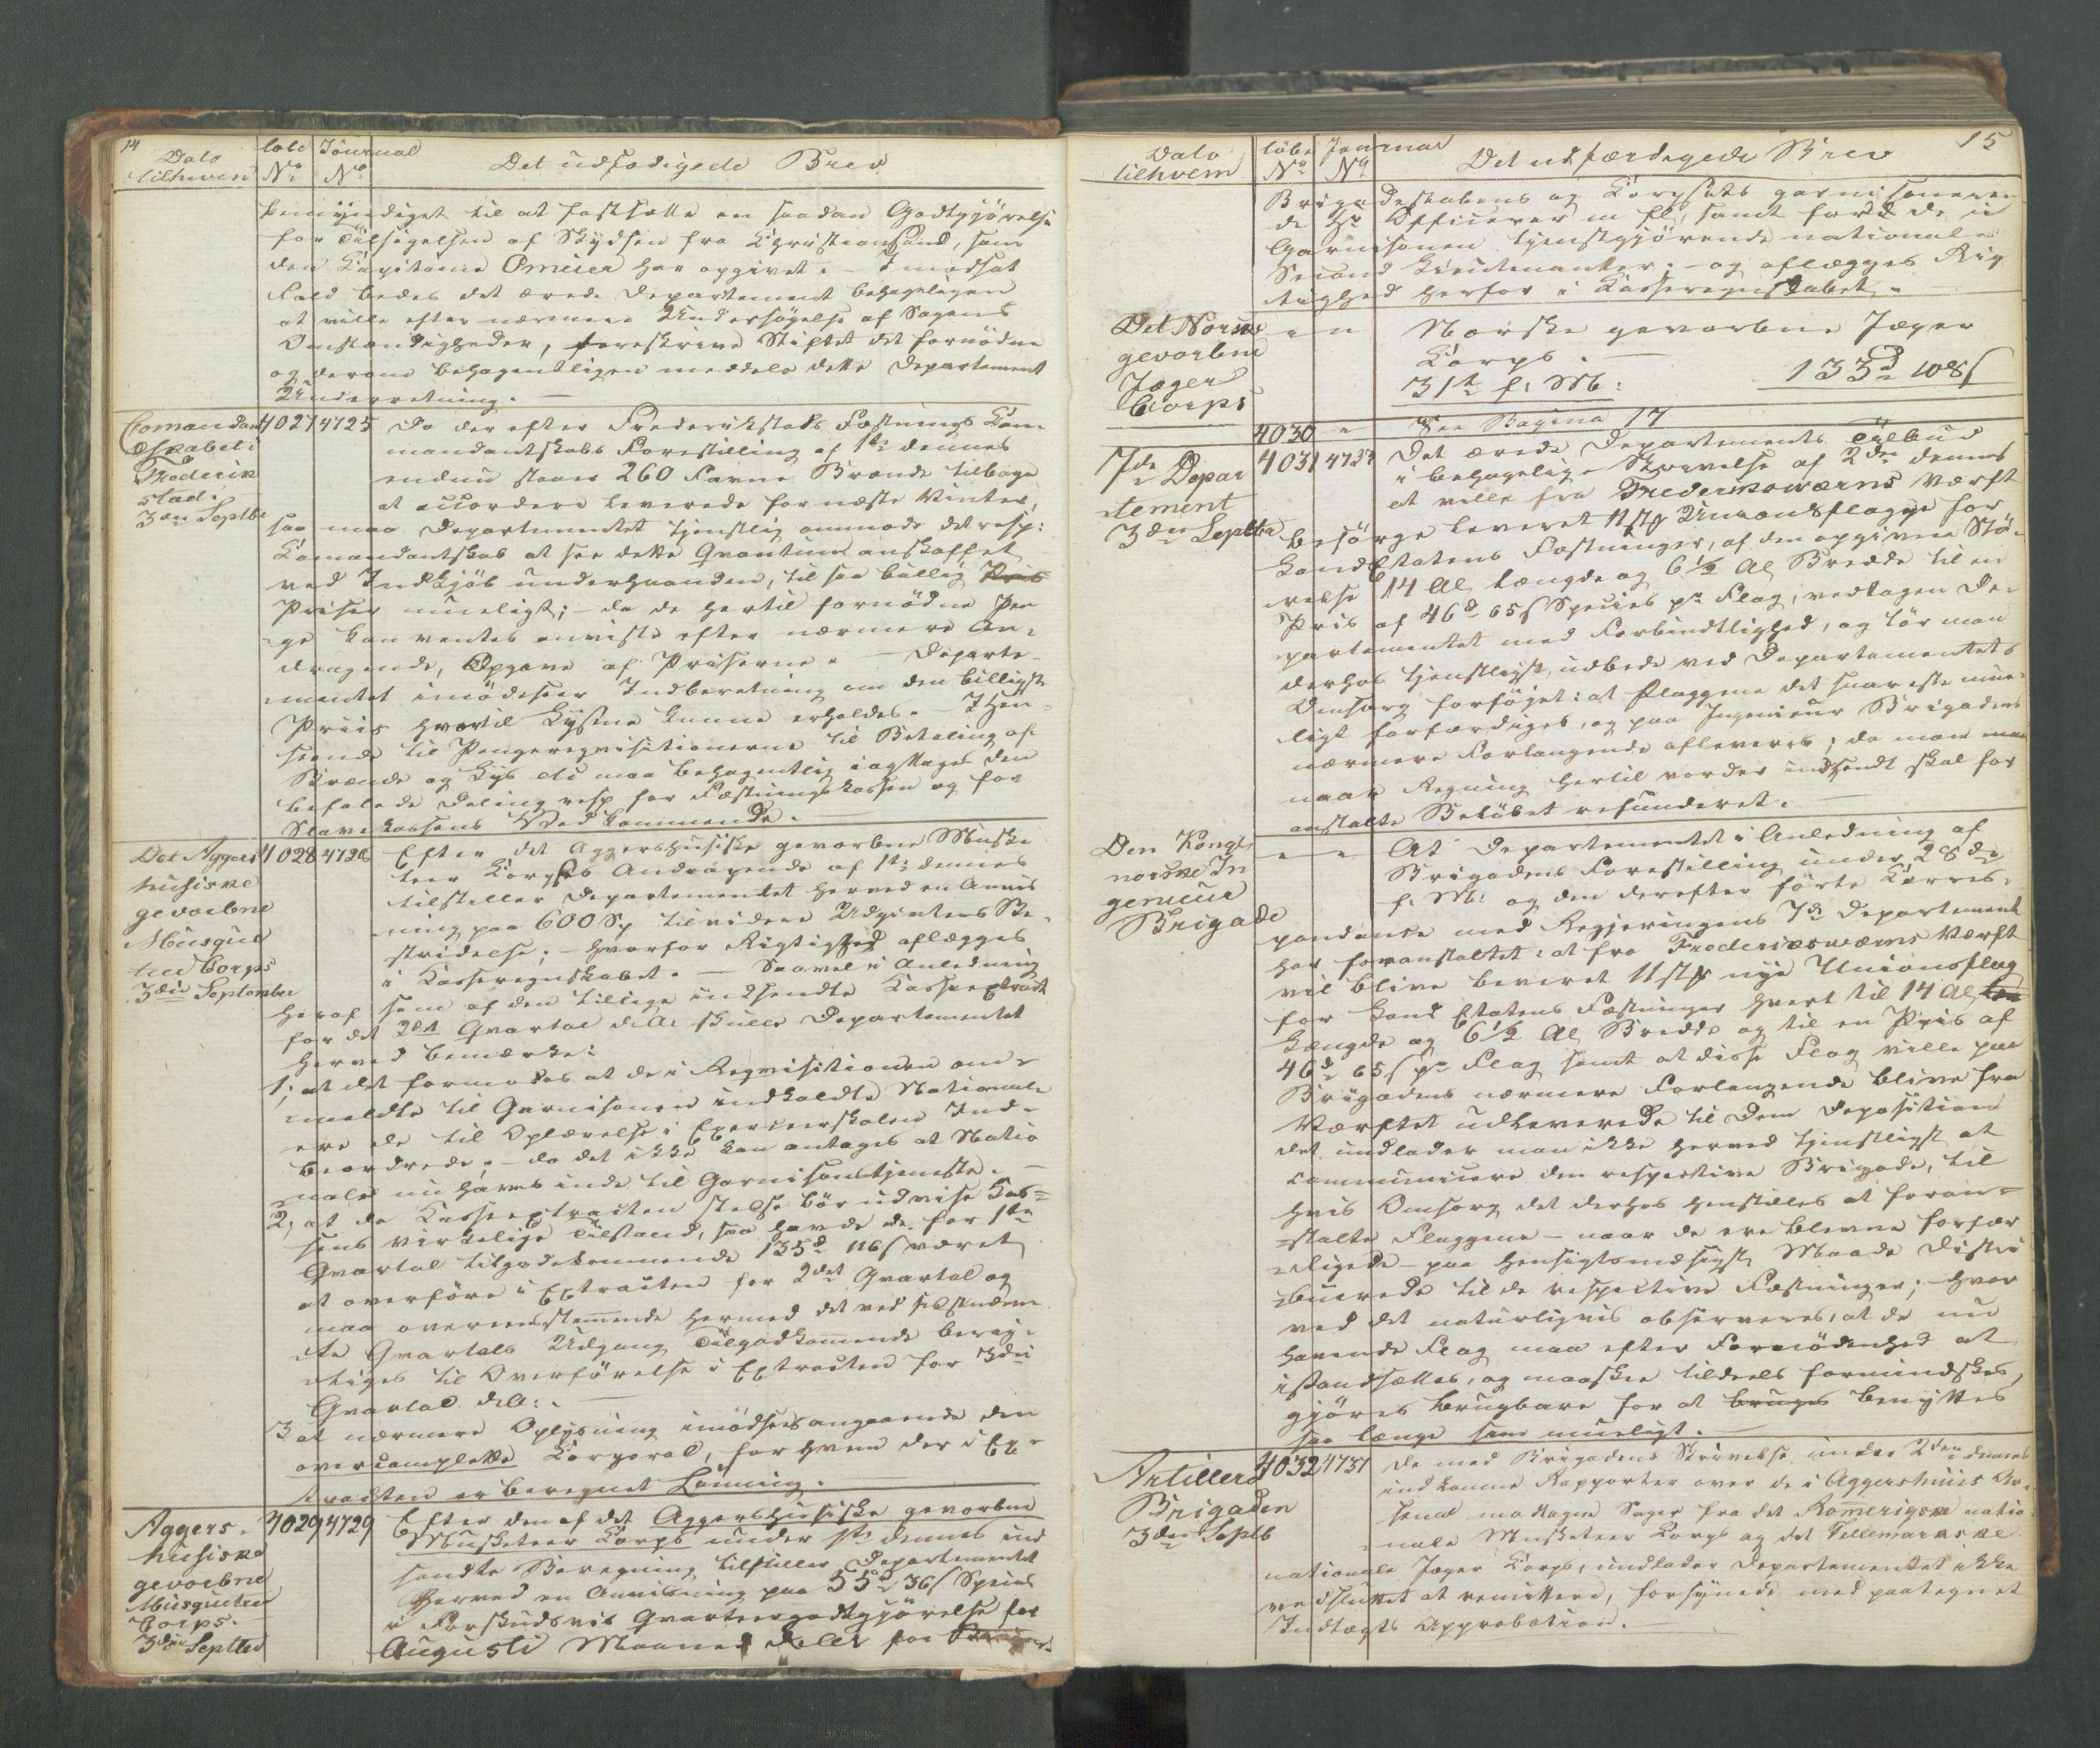 14
Dato
tilhvem
løbe
No
Journal
No
Det udfærdigede Brev
bemÿndiget til at fastsætte en saadan Godtgjörelse
for Tilsigelsen af Skydsen fra Christiansand, som
den Capitaine Omeier har opgivet. - I modsat
Fald bedes det ærede Departement behageligen
at ville efter nærmere Undersögelse af Sagens
Omstændigheder, foreskrive Stiftet det fornödne
og derom behagentligen meddele dette Departement
Underretning. -
Comandant
skabet i
Frederik
stad.
3den Septbr
4027 4725
Da der efter Frederikstads Fæstnings Com
mandantskabs Forestilling af 1ste dennes
endnu staaer 260 Favne Brænde tilbage
at accordere leverede for næste Vinter,
saa maa Departementet tjenstlig anmode det resp:
Comandantskab at see dette Qvantum anskaffet
ved Indkjöb underhaanden, til saa billig Priis
Priser mueligt; - da de hertil fornödne Pen
ge kan ventes anviste efter nærmere An-
dragende, Opgave af Priserne. - Departe-
mentet imödeseer Indberetning om den billigste
Priis hvortil Lysene kunne erholdes. - I Hen-
seende til Pengereqvisitionerne til Betaling af
Brænde og Lys etc maa behagentlig iagttages den
befalede Deling resp for Fæstningskassen og for
Slavekassens Vedkommende. -
Det Aggers
husiske
gevorbne
Musque
teer Corps
3die September
4028 4726
Efter det Aggershusiske gevorbne Muske
teer Corpses Andragende af 1ste dennes
tilstiller Departementet herved en Anvis
ning paa 600 Sp til videre Udgivters Be-
stridelse; - hvorfor Rigtighed aflægges
i Casseregnskabet. - Saavel i Anledning
heraf som af den tillige indsendte Casseextract
for det 2det Qvartal d.A. skulle Departementet
herved bemærke:
1, at det formodes at de i Reqvisitionen om-
meldte til Garnisonen indkaldte Nationale
ere de til Oplærelse i Exerceerskolen Ind-
beordrede. - da det ikke kan antages at Natio
nale nu haves inde til Garnisonstjeneste. -
2, at da Casseextracten stedse bör udvise Cas-
sens virkelige Tilstand, saa havde de for 1ste
Qvartal tilgodekommende 135d 116s været
at overföre i Extracten for 2det Qvartal og
maa overeensstemmende hermed det ved sidstnævn
te Qvartals Udgang Tilgodkommende berig-
tiges til Overförelse i Extracten for 3die
Qvartal d.A: -
3 at nærmere Oplysning imödesees angaaende den
overcomplette Corporal, for hvem der i Ex-
tracten er beregnet Lønning.
Aggers-
husiske
gevorbne
Musqueteer
Corps.
3die Septbr
4029 4729
Efter den af det Aggershusiske gevorbne
Musketeer Corps under 1ste dennes ind
sendte Beregning tilstiller Departementet
herved en Anvisning paa 55d 36s Species
i Forskudsvis Qvarteergodtgjörelse for
Augusti Maaned d. A. for
15
Dato
tilhvem
løbe
No
Journal
No
Det udfærdigede Brev
Brigadestabens og Corpsets garnisoneren
de Hr Officierer m fl, samt for de i
Garnisonen tjenstgjörende nationale
Second Lieutenanter; - og aflægges Rig
tighed herfor i Casseregnskabet. -
Det Norske
gevorbne
Jæger
Corps
" "
Norske gevorbne Jæger
Corps. -
31te f: M:
133d 108s
4030 " See Pagina 17
7de Depar
tement
3den Septbr
4031 4727
Det ærede Departements Tilbud
i behagelig Skrivelse af 2den dennes
at ville fra Frederiksværns Værft
besörge leveret 11 stk Unionsflagge for
Landetatens Fæstninger, af den opgivne Stö-
relse 14 Al Længde og 6½ Al Bredde til en
Pris af 46d 65s Species pr Flag, vedtagen De-
partementet med Forbindtlighed, og tör man
derhos tjenstligst udbede ved Departementets
Omsorg forföjet: at Flaggene det snareste mue-
ligt forfærdiges, og paa Ingenieur Brigadens
nærmere Forlangende afleveres; da man maa
naar Regning hertil vorder indsendt skal for
anstalte Belöbet refunderet. -
Den Kongl
norske In
genieur
Brigade
" "
At Departementet i Anledning af
Brigadens Forestilling under 28de
f. M. og den derefter förte Corres-
pondance med Regjeringens 7de Departement
har foranstaltet: at fra Frederiksværns Værft
vil blive leveret 11 stk nye Unionsflag
for Land Etatens Fæstninger hvert til 14 Al
Længde og 6½ Al Bredde og til en Pris af
46d 65s pr Flag samt at disse Flag ville paa
Brigadens nærmere Forlangende blive fra
Værftet udleverede til Dens Deposition
det undlader man ikke herved tjenstligst at
communicere den respective Brigade, til
hvis Omsorg det derhos henstilles at foran-
stalte Flaggene - naar de ere blevne forfær
digede - paa hensigtsmæsigst Maade distri
buerede til de respective Fæstninger; hvor
ved det naturligvis observeres, at de nu
havende Flag maa efter Fornödenhed at
istandsættes, og maaskee tildeels formindskes,
gjöres brugbare for at bruges benyttes
saa længe som mueligt. -
Artilleri
Brigaden
3den Septb
4032 4731
De med Brigadens Skrivelse under 2den dennes
indkomne Rapporter over de i Aggershuus Ar-
senal modtagne Sager fra det Romerigske natio-
nale Musketeer Corps og det Tellemarkske
nationale Jæger Corps, undlader Departementet ikke
vedsluttet at remittere, forsynede med paategnet
Indtægts Approbation. -